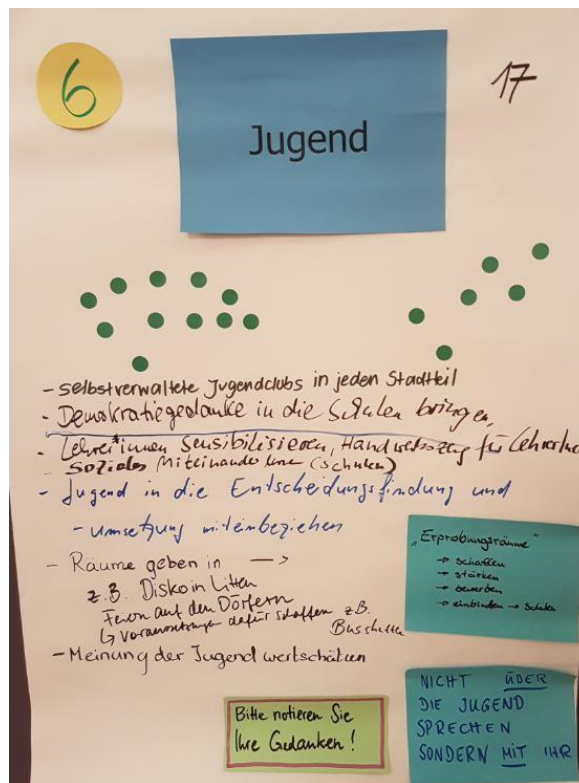 6
17
Jugend
- Selbstverwaltete Jugendclubs in jeden Stadtteil
- Demokratiegedanke in die Schulen bringen,
- Lehrer*innen Sensibilisieren, Handwerkszeug für
- Soziales Miteinander (Schulen)
- Jugend in die Entscheidungsfindung und
- Umsetzung miteinbeziehen
- Räume geben in →
z.B. Disko in
auf den Dörfern
↳ Voraussetzungen dafür schaffen z.B.
- Meinung der Jugend wertschätzen
„Erprobungsräume"
→ schaffen
→ stärken
→ bewerben
→ einbinden → Schulen
Bitte notieren Sie
Ihre Gedanken!
NICHT ÜBER
DIE JUGEND
SPRECHEN
SONDERN MIT IHR